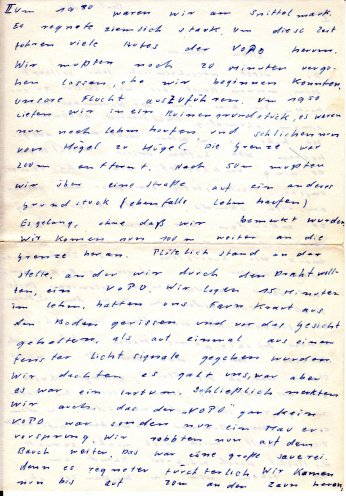 II Um 19 30 waren wir am Spittelmark.
Es regnete ziemlich stark. Um diese Zeit
fuhren viele Autos der VoPo herum.
Wir mußten noch 20 Minuten verge-
hen lassen, ehe wir beginnen konnten,
unsere Flucht auszuführen. Um 19 50
liefen wir in ein Ruinengrundstück, es waren
nur noch Lehmhaufen, und schlichen nun
von Hügel zu Hügel. Die Grenze war
200m entfernt. Nach 50m mußten
wir über eine Straße auf ein anderes
Grundstück (ebenfalls Lehmhaufen)
Es gelang, ohne daß wir bemerkt wurden
Wir kamen nun 100m weiter an die
Grenze heran. Plötzlich stand an der
Stelle, an der wir durch den Draht woll-
ten, ein VoPo. Wir lagen 15 Minuten
im Lehm, hatten uns Farnkraut aus
dem Boden gerissen und vor das Gesicht
gehalten, als auf einmal aus einem
Fenster Lichtsignale gegeben wurden.
Wir dachten es galt uns, war aber
es war ein Irrtum. Schließlich merkten
wir auch, das der "VoPo" gar kein
VoPo war sondern nur ein Mauer-
vorsprung. Wir robbten nun auf dem
Bauch weiter. Das war eine große Sauerei.
denn es regnete fürchterlich. Wir kamen
nun bis auf 20m an den Zaun heran,